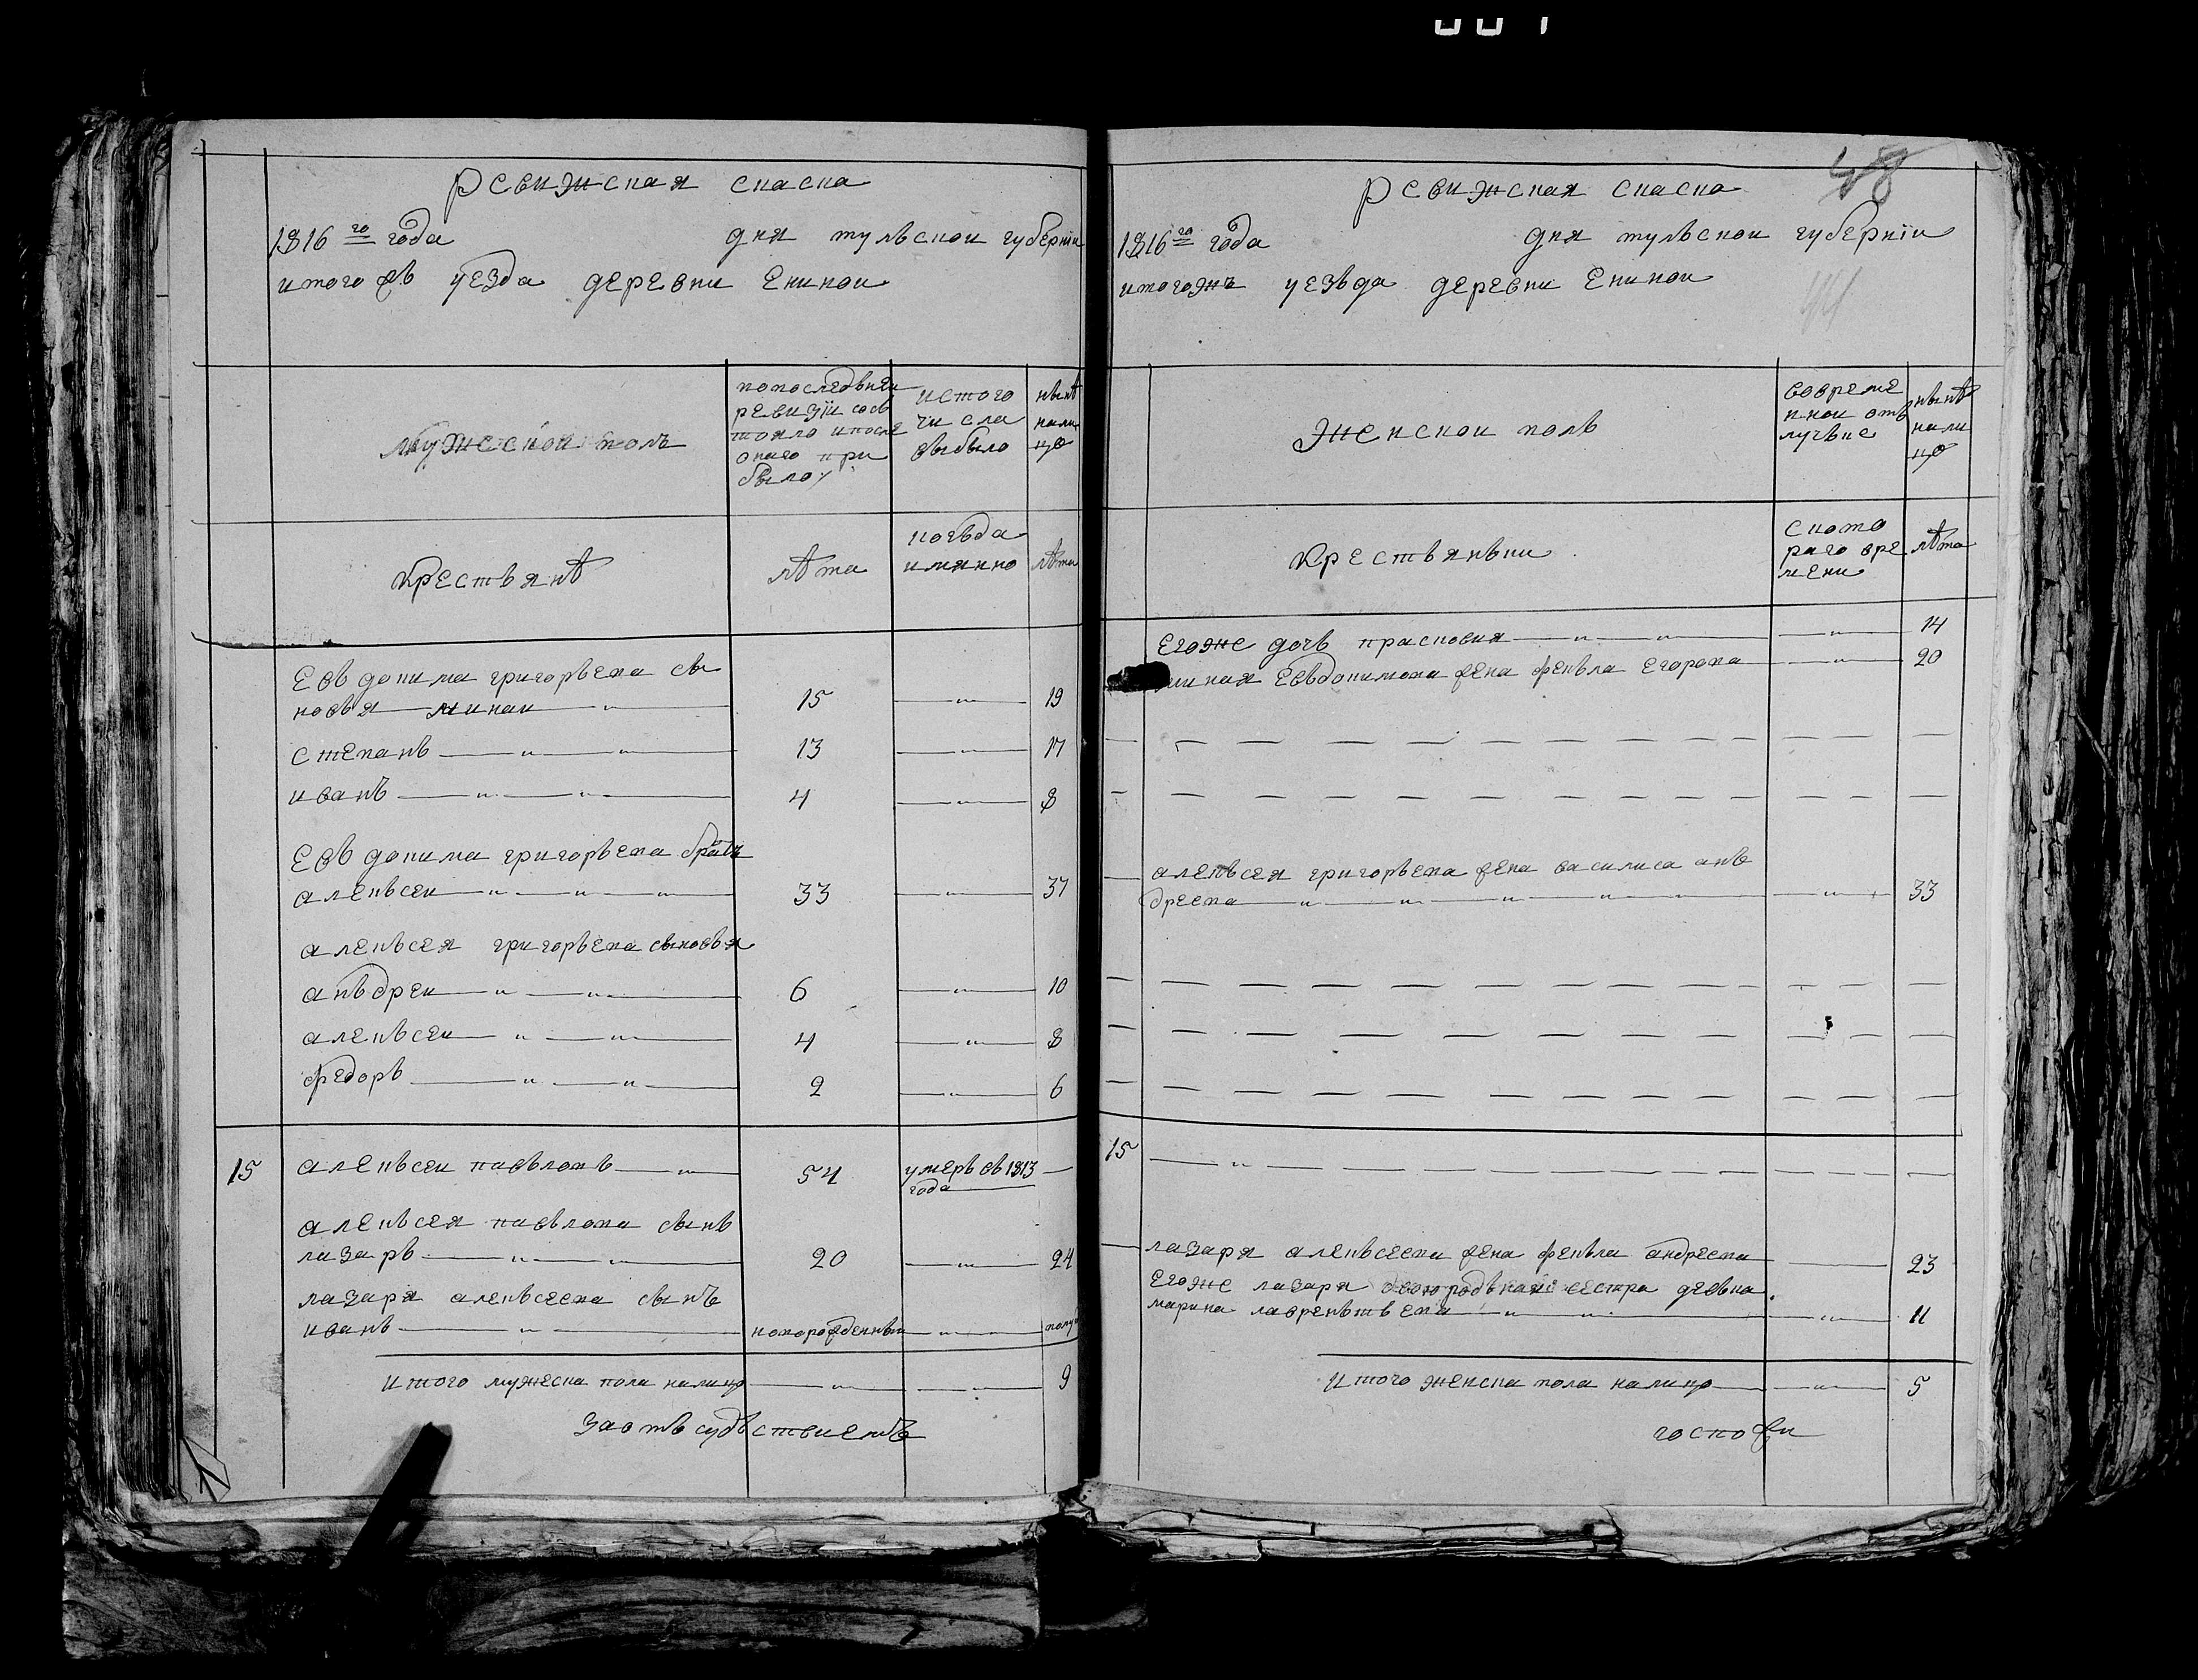 ревижская скаска
1816го года дня тульской губернїи
итого въ уезда деревни Енинои
мужескои полъ
попоследьнеи
ревизїи сось
тояло ипосле
онаго при
было
истого
числа
выбыло
нынѣ
нали
цо
крестьянѣ
лѣта
когьда
имянно
лѣта
Евьдокима григорьева сы
новья минаи 15 19
степанъ 13 17
иванъ 4 8
Евьдокима григорьева братъ
алекьсеи 33 37
алекьсея григорьева сыновья
аньдреи 6 10
алекьсеи 4 8
федоръ 2 6
15 алекьсеи павловъ 54 умеръ въ 1813
года
алекьсея павлова сынъ
лазарь 20 24
лазаря алекьсеева сынъ
иванъ новорожденныи полу
итого мужеска пола налицо 9
заотьсудьствиемъ
48
ревижская скаска
1816го года дня тульскои губернїи
итогожъ уезьда деревни Енинои
44
женскои полъ
вовреме
ннои отъ
лучьке
нынѣ
нали
цо
крестьянъки
скато
раго вре
мени
лѣта
Егоже дочь прасковия 14
миная Евьдокимова жена фекьла Егорова 20
алекьсея григорьева жена василиса анъ
дреева 33
15
лазаря алекьсеева жена фекьла андреева 23
Егоже лазаря двоюродьная сестра девка
марина лавреньтьева 11
итого женска пола налицо 5
госпожи